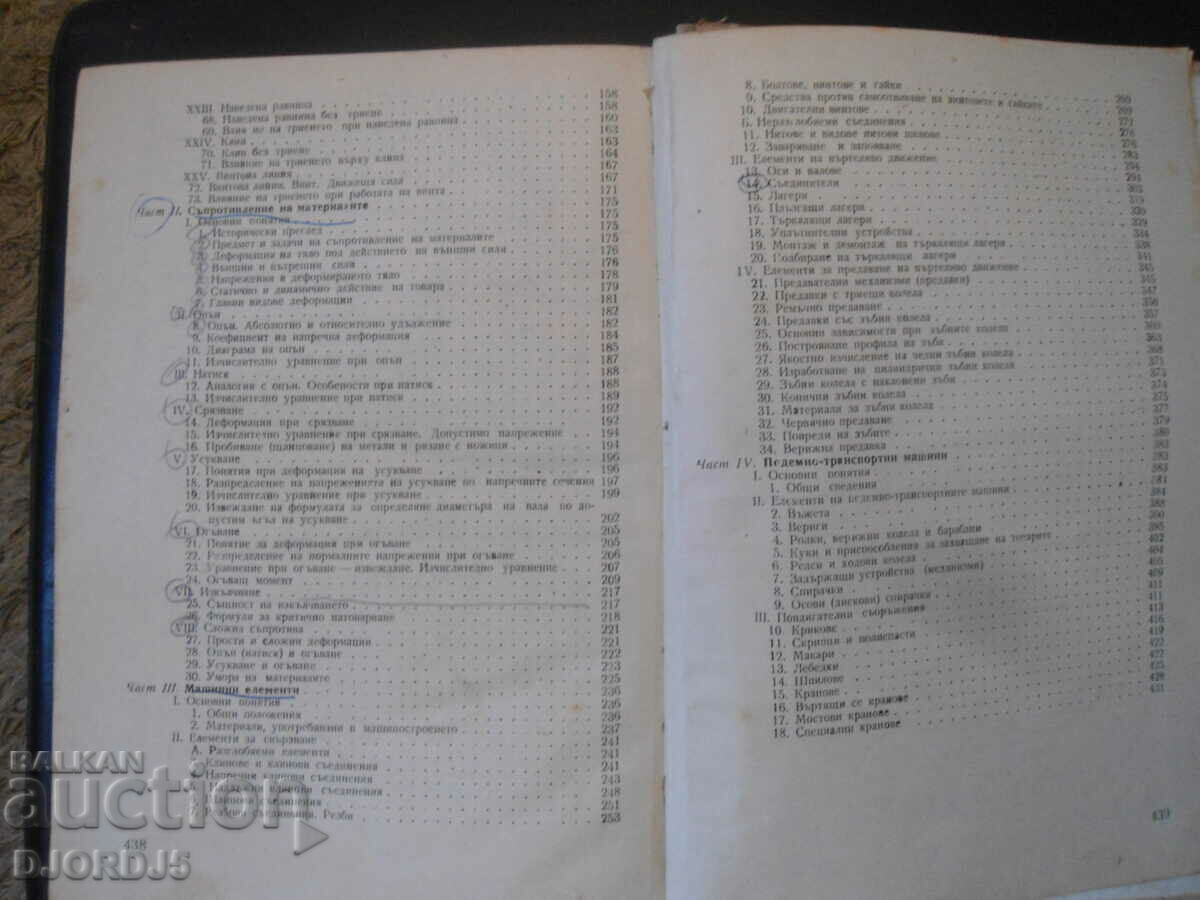 XXIII. Наведена равнина 158
68. Наведена равнина без триене 158
69. Влияние на триенето при наведена равнина 160
XXIV. Клин 163
70. Клин без триене 163
71. Влияние на триенето върху клина 164
XXV. Винтова линия 167
72. Винтова линия. Винт. Движеща сила 167
73. Влияние на триенето при работата на винта 171
Част II. Съпротивление на материалите 175
I. Основни понятия 175
1. Исторически преглед 175
2. Предмет и задачи на съпротивление на материалите 175
3. Деформация на тяло под действието на външни сили 176
4. Външни и вътрешни сили 176
5. Напрежения в деформираното тяло 178
6. Статично и динамично действие на товара 179
7. Главни видове деформации 181
II. Опън 182
8. Опън. Абсолютно и относително удължение 182
9. Коефициент на напречна деформация 184
10. Диаграма на опън 185
11. Изчислително уравнение при опън 187
III. Натиск 188
12. Аналогия с опън. Особености при натиск 188
13. Изчислително уравнение при натиск 189
IV. Срязване 192
14. Деформация при срязване 192
15. Изчислително уравнение при срязване. Допустимо напрежение 194
16. Пробиване (щанцоване) на метали и рязане с ножици 194
V. Усукване 196
17. Понятия при деформация на усукване 196
18. Разпределение на напреженията на усукване по напречните сечения 197
19. Изчислително уравнение при усукване 199
20. Извеждане на формулата за определяне диаметъра на вала по до-
пустим ъгъл на усукване 202
VI. Огъване 205
21. Понятие за деформация при огъване 205
22. Разпределение на нормалните напрежения при огъване 206
23. Уравнение при огъване — извеждане. Изчислително уравнение 207
24. Огъващ момент 209
VII. Изкълчване 217
25. Същност на изкълчването 217
26. Формули за критично натоварване 218
VIII. Сложна съпротива 221
27. Прости и сложни деформации 221
28. Опън (натиск) и огъване 222
29. Усукване и огъване 223
30. Умора на материалите 225
Част III. Машинни елементи 236
I. Основни понятия 236
1. Общи положения 236
2. Материали, употребявани в машиностроенето 237
II. Елементи за свързване 241
А. Разглобяеми елементи 241
Клинове и клинови съединения 241
Напречни клинови съединения 243
клинови съединения 248
съединения 251
Резби 253
438
8. Болтове, винтове и гайки
9. Средства против самоотвиване на винтовете и гайките
10. Двигателни винтове
Б. Неразглобяеми съединения
11. Нитове и видове нитови шевове
12. Заваряване и запояване
III. Елементи на въртеливо движение
13. Оси и валове
14. Съединители
15. Лагери
16. Плъзгащи лагери
17. Търкалящи лагери
18. Уплътнителни устройства
19. Монтаж и демонтаж на търкалящи лагери
20. Подбиране на търкалящи лагери
IV. Елементи за предаване на въртеливо движение
21. Предавателни механизми (предавки)
22. Предавки с триещи колела
23. Ремъчно предаване
24. Предавки със зъбни колела
25. Основни зависимости при зъбните колела
26. Построяване профила на зъби
27. Якостно изчисление на челни зъбни колела
28. Изработване на цилиндрични зъбни колела
29. Зъбни колела с наклонени зъби
30. Конични зъбни колела
31. Материали за зъбни колела
32. Червячно предаване
33. Повреди на зъбите
34. Верижна предавка
Част IV. Подемно-транспортни машини
I. Основни понятия
1. Общи сведения
II. Елементи на подемно-транспортните машини
2. Въжета
3. Вериги
4. Ролки, верижни колела и барабани
5. Куки и приспособления за захващане на товарите
6. Релси и ходови колела
7. Задържащи устройства (механизми)
8. Спирачки
9. Осови (дискови) спирачки
III. Повдигателни съоръжения
10. Крикове
11. Скрипци и полиспасти
12. Макари
13. Лебедки
14. Шпилове
15. Кранове
16. Въртящи се кранове
17. Мостови кранове
18. Специални кранове
439
BALKAN
auction
DJORDJ5